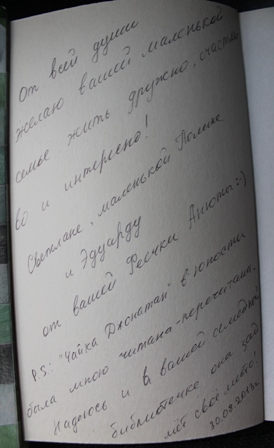 От всей души
желаю вашей маленькой
семье жить дружно, счастли
во и интересно!
Светлане, маленькой Полине
и Эдуарду
от вашей Феечки Анюты:)
P.S.: "Чайка Джонатан" в юности
была мною читана-перечитана.
Надеюсь и в вашей семейной
библиотечке она зай
мёт своё место!
30.08.2013г.